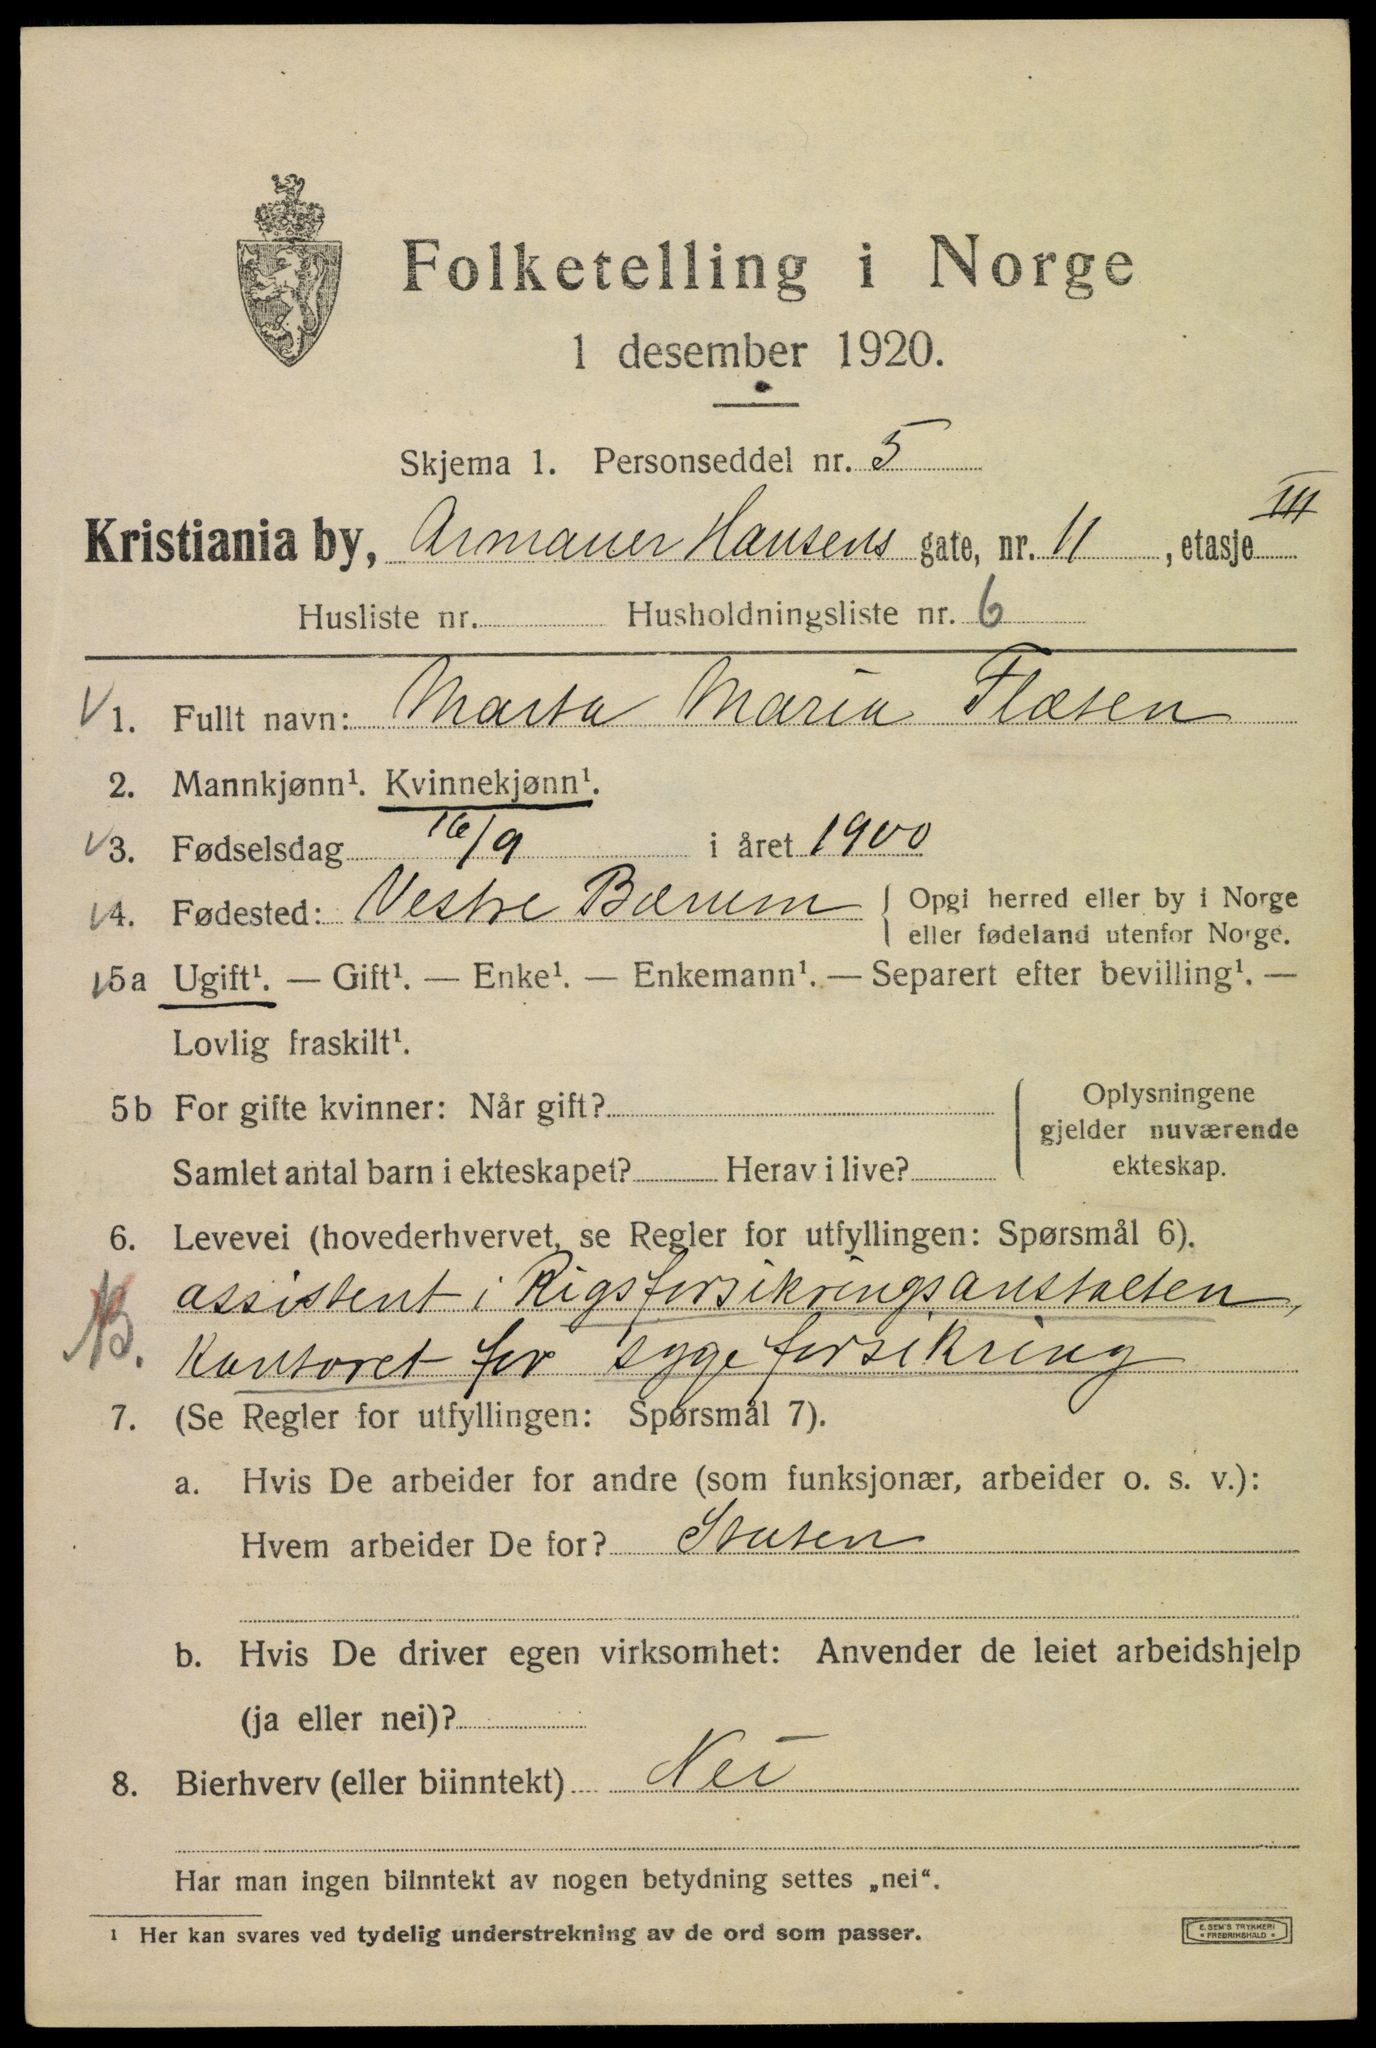 Folketelling i Norge
1 desember 1920.
Skjema 1. Personseddel nr. 5
Kristiania by, Armauer Hansens gate, nr. 11, etasje III
Husliste nr. Husholdningsliste nr. 6
V 1. Fullt navn: Marta Maria Flaten
2. Mannkjønn¹. Kvinnekjønn¹.
V 3. Fødselsdag 16/9 i året 1900
V 4. Fødested: Vestre Bærum { Opgi herred eller by i Norge
eller fødeland utenfor Norge.
V 5a Ugift¹. — Gift¹. — Enke¹. — Enkemann¹. — Separert efter bevilling¹. —
Lovlig fraskilt¹.
5b For gifte kvinner: Når gift?
Samlet antal barn i ekteskapet? Herav i live?
Oplysningene
gjelder nuværende
ekteskap.
6. Levevei (hovederhvervet, se Regler for utfyllingen: Spørsmål 6).
assistent i Rigsforsikringsanstalten,
NB. Kontoret for sygeforsikring
7. (Se Regler for utfyllingen: Spørsmål 7).
a. Hvis De arbeider for andre (som funksjonær, arbeider o. s. v.):
Hvem arbeider De for? Staten
b. Hvis De driver egen virksomhet: Anvender de leiet arbeidshjelp
(ja eller nei)?
8. Bierhverv (eller biinntekt) Nei
Har man ingen biinntekt av nogen betydning settes „nei“.
¹ Her kan svares ved tydelig understrekning av de ord som passer.
E. SEM'S TRYKKERI
FREDRIKSHALD